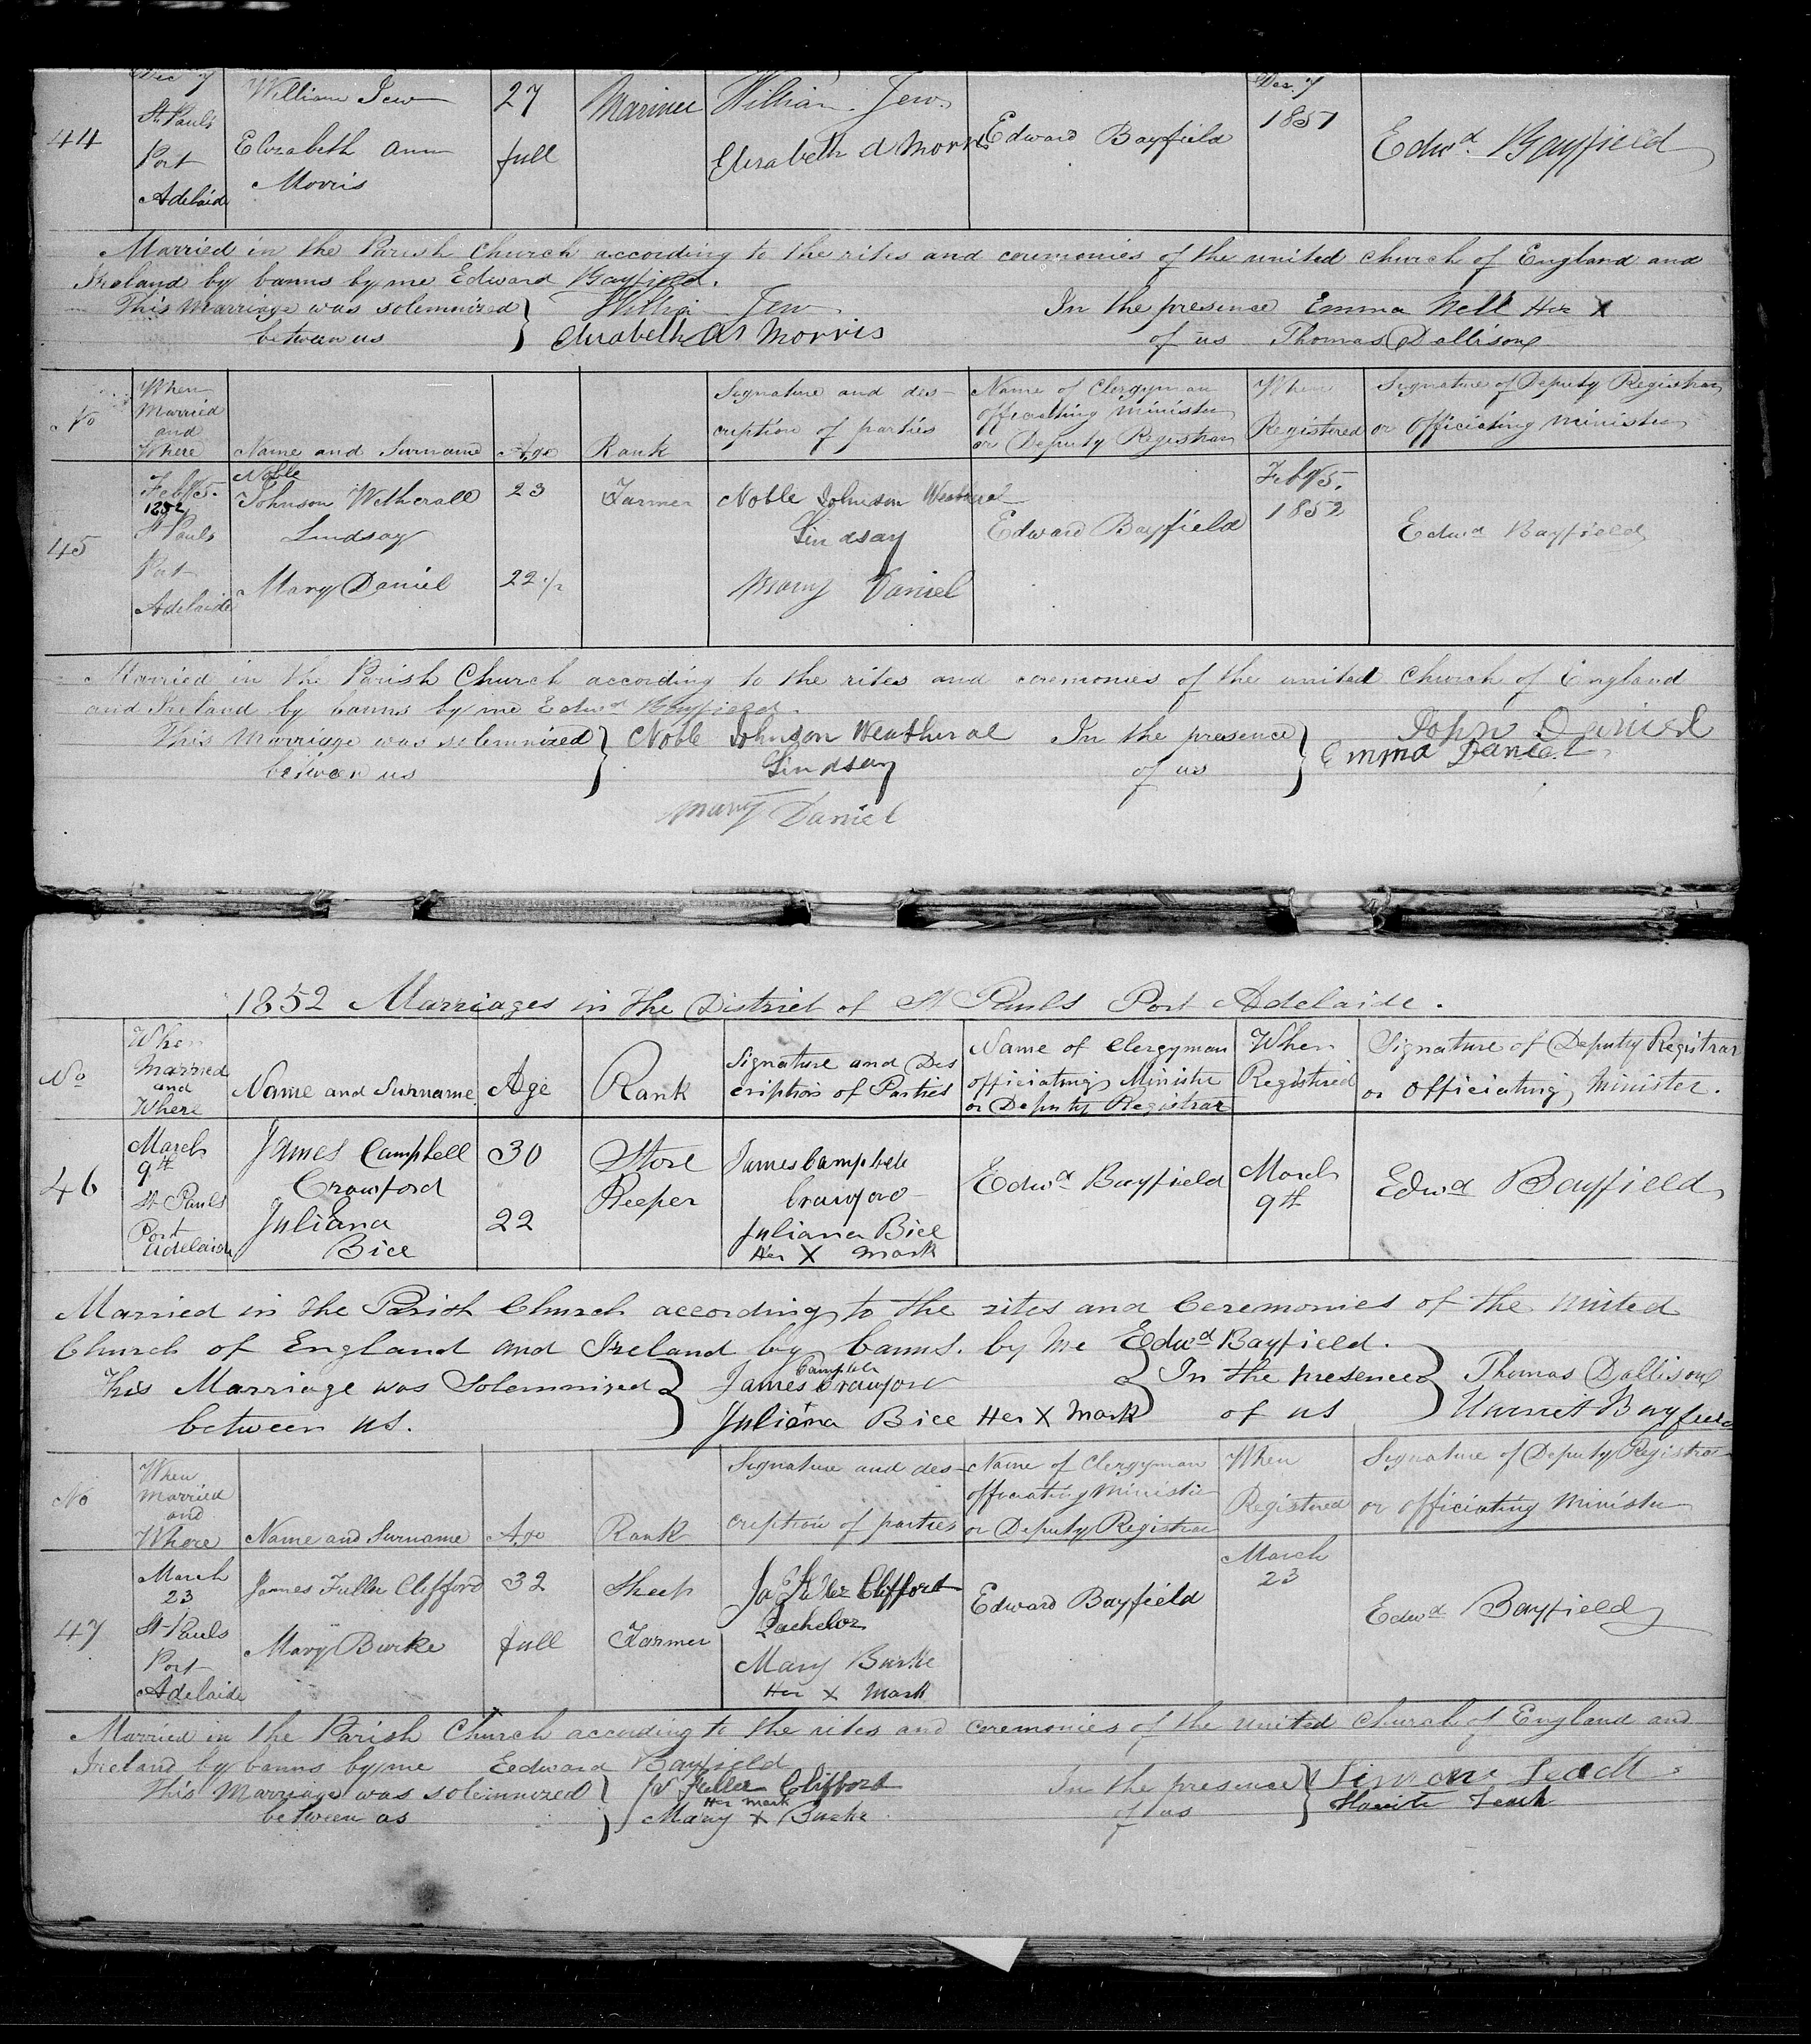 44
Dec 7
St Pauls
Port
Adelaide
William Jew
Elizabeth Ann
Morris
27
full
Mariner
William Jew
Elisabeth A Morris
Edward Bayfield
Dec 7
1851
Edwd Bayfield
Married in the Parish Church according to the rites and ceremonies of the united church of England and
Ireland by banns by me Edward Bayfield.
This Marriage was solemnized } William Jew In the presence Emma Nell Her X
between us Elisabeth A Morris of us Thomas Dallison
No
When
Married
and
Where
Name and Surname
Age
Rank
Signature and des-
cription of parties
Name of Clergyman
officiating minister
or Deputy Registrar
When
Registered
Signature of Deputy Registrar
or officiating minister
45
Feby 5.
1852
St Pauls
Port
Adelaide
Noble
Johnson Wetherall
Lindsay
Mary Daniel
23
22 1/2
Farmer
Noble Johnson Weatheral
Lindsay
Mary Daniel
Edward Bayfield
Feby 5.
1852
Edwd Bayfield
Married in the Parish Church according to the rites and ceremonies of the united church of England
and Ireland by banns by me Edwd Bayfield.
This Marriage was solemnized } Noble Johnson Weatheral In the presence } John Daniel
between us Lindsay of us Emma Daniel
Mary Daniel
1852 Marriages in the District of St Pauls Port Adelaide.
No
When
Married
and
Where
Name and Surname
Age
Rank
Signature and Des
cription of Parties
Name of Clergyman
officiating Ministr
or Deputy Registrar
When
Registered
Signature of Deputy Registrar
or officiating minister.
46
March
9th
St Pauls
Port
Adelaide
James Campbell
Crawford
Juliana
Bice
30
22
Store
Keeper
James Campbell
Crawford
Juliana Bice
Her X Mark
Edwd Bayfield
March
9th
Edwd Bayfield
Married in the Parish Church according to the rites and Ceremonies of the united
Church of England and Ireland by banns. by me Edwd Bayfield.
Campbell
This Marriage was Solemnized } James Crawford } In the presence } Thomas Dallison
between us. Juliana Bice Her X Mark of us Harriet Bayfield
No
When
Married
and
Where
Name and Surname
Age
Rank
Signature and des-
cription of parties
Name of Clergyman
officiating Minister
or Deputy Registrar
When
Registered
Signature of Deputy Registrar
or officiating Minister
47
March
23
St Pauls
Port
Adelaide
James Fuller Clifford
Mary Burke
32
full
Sheep
Farmer
Jas Fuller Clifford
Bachelor
Mary Burke
Her X Mark
Edward Bayfield
March
23
Edwd Bayfield
Married in the Parish Church according to the rites and ceremonies of the united church of England and
Ireland by banns by me Edward Bayfield
This Marriage was solemnized } Js Fuller Clifford In the presence } Simon
Her mark
between us Mary X Burke of us